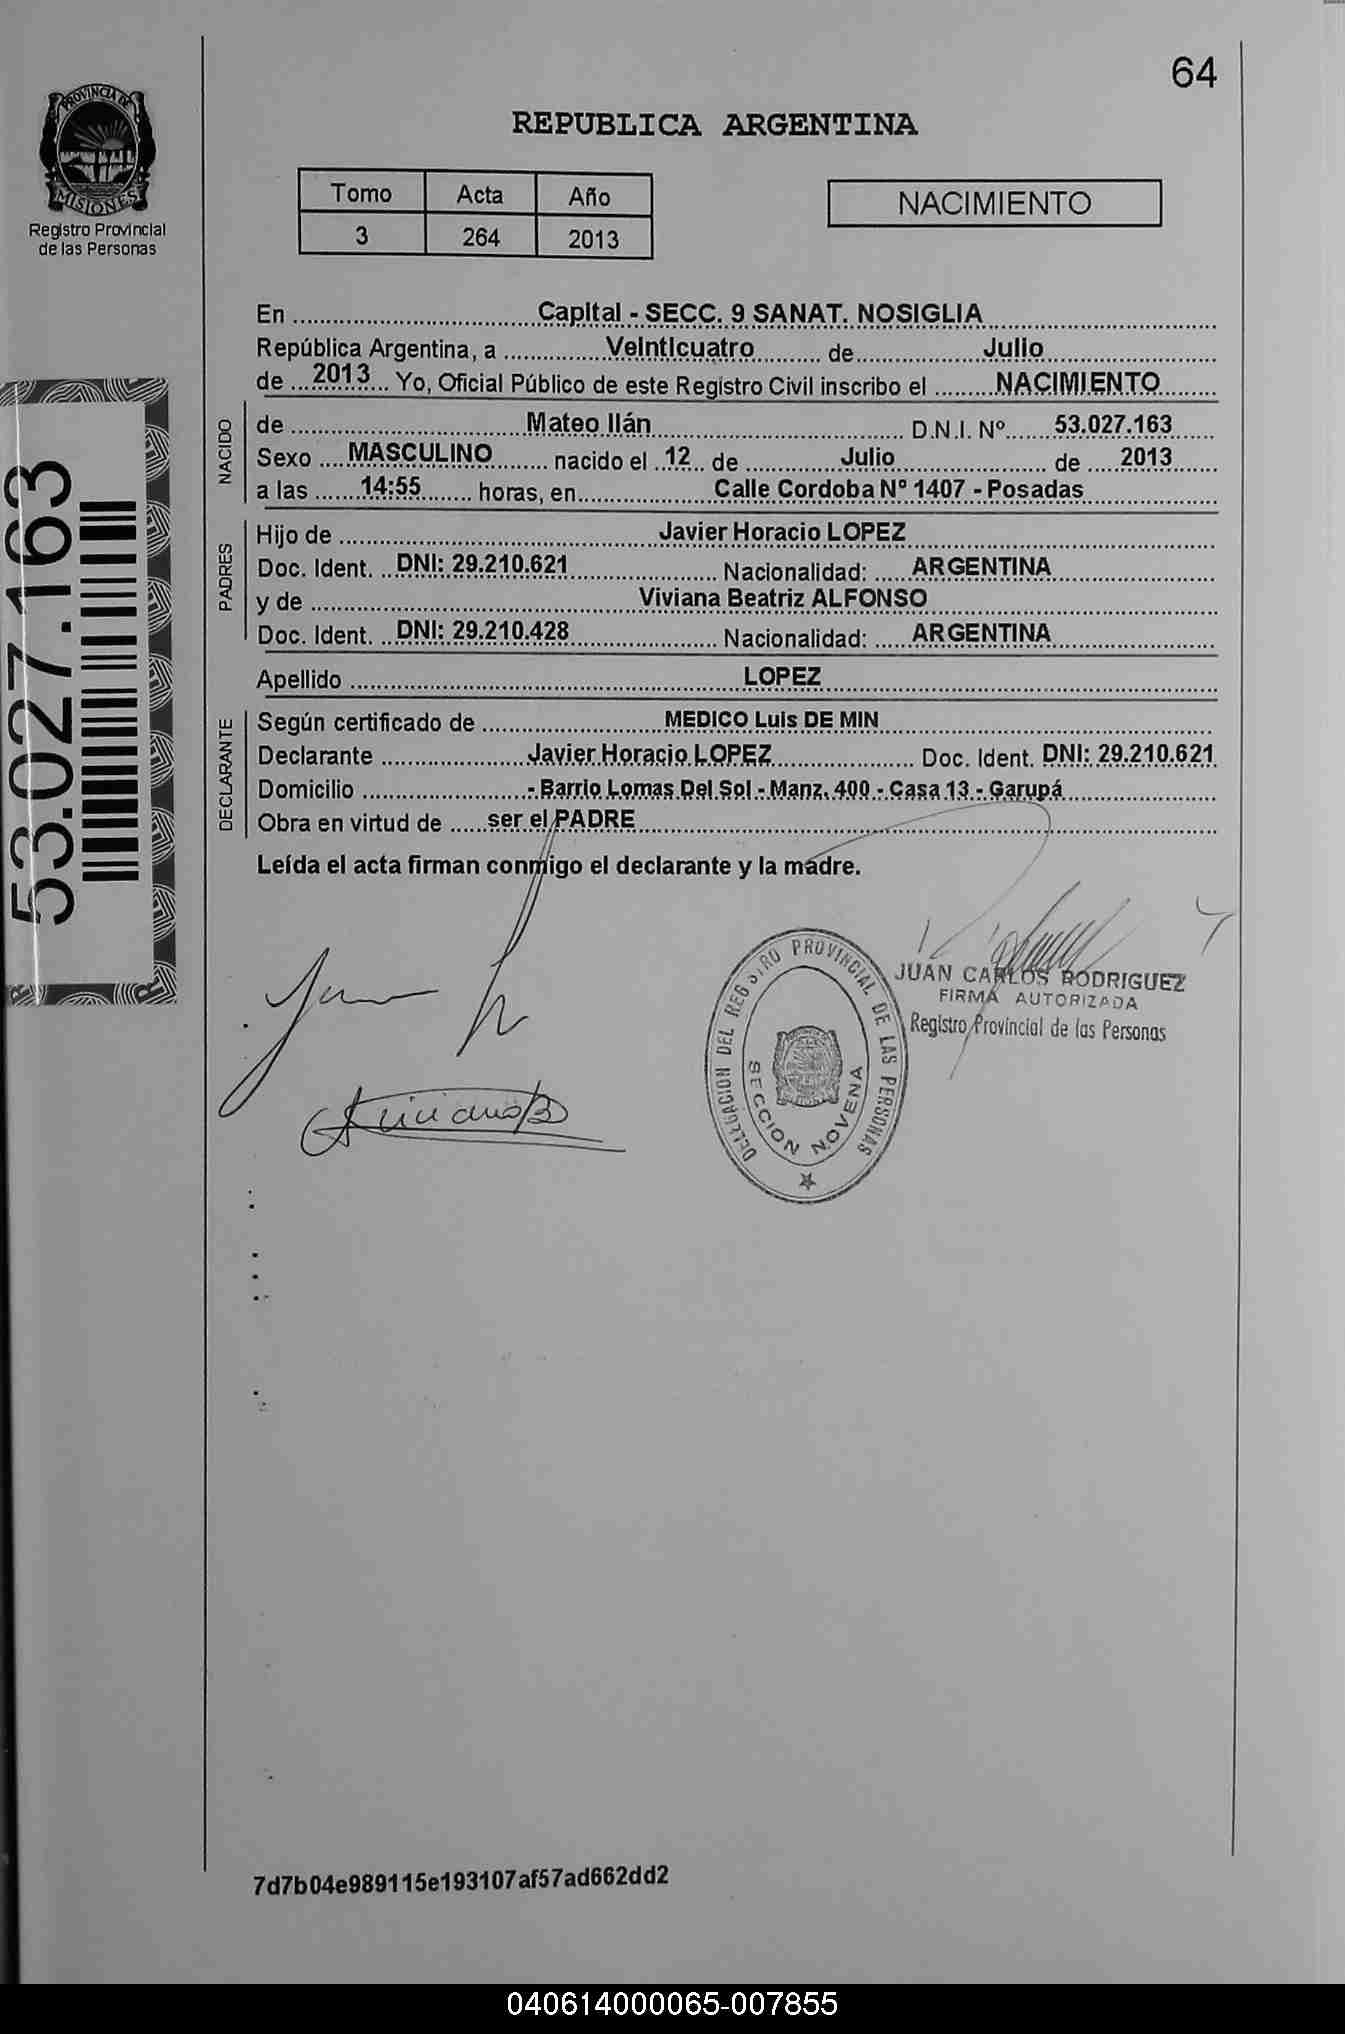 64
PROVINCIA DE
MISIONES
Registro Provincial
de las Personas
REPUBLICA ARGENTINA
Tomo Acta Año
3 264 2013
NACIMIENTO
En Capital - SECC. 9 SANAT. NOSIGLIA
República Argentina, a Veinticuatro de Julio
de 2013 Yo, Oficial Público de este Registro Civil inscribo el NACIMIENTO
NACIDO
de Mateo Ilán D.N.I. Nº 53.027.163
Sexo MASCULINO nacido el 12 de Julio de 2013
a las 14:55 horas, en Calle Cordoba Nº 1407 - Posadas
PADRES
Hijo de Javier Horacio LOPEZ
Doc. Ident. DNI: 29.210.621 Nacionalidad: ARGENTINA
y de Viviana Beatriz ALFONSO
Doc. Ident. DNI: 29.210.428 Nacionalidad: ARGENTINA
Apellido LOPEZ
DECLARANTE
Según certificado de MEDICO Luis DE MIN
Declarante Javier Horacio LOPEZ Doc. Ident. DNI: 29.210.621
Domicilio - Barrio Lomas Del Sol - Manz. 400 - Casa 13 - Garupá
Obra en virtud de ser el PADRE
Leída el acta firman conmigo el declarante y la madre.
53.027.163
DELEGACION DEL REGISTRO PROVINCIAL DE LAS PERSONAS
SECCION NOVENA
JUAN CARLOS RODRIGUEZ
FIRMA AUTORIZADA
Registro Provincial de las Personas
Viviana B
7d7b04e989115e193107af57ad662dd2
040614000065-007855